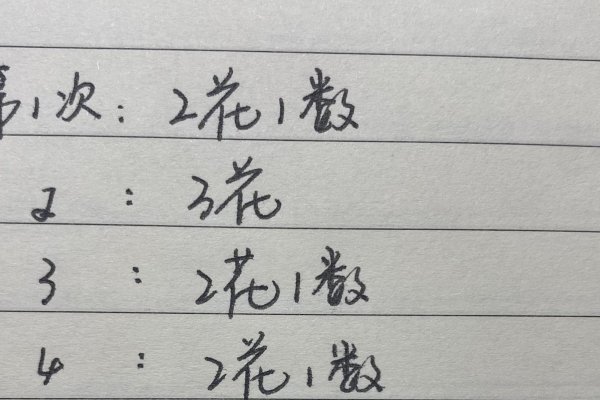 第1次：2花1数
2：3花
3：2花1数
4：2花1数